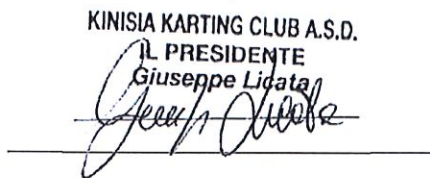 KINISIA KARTING CLUB A.S.D.
IL PRESIDENTE
Giuseppe Licata